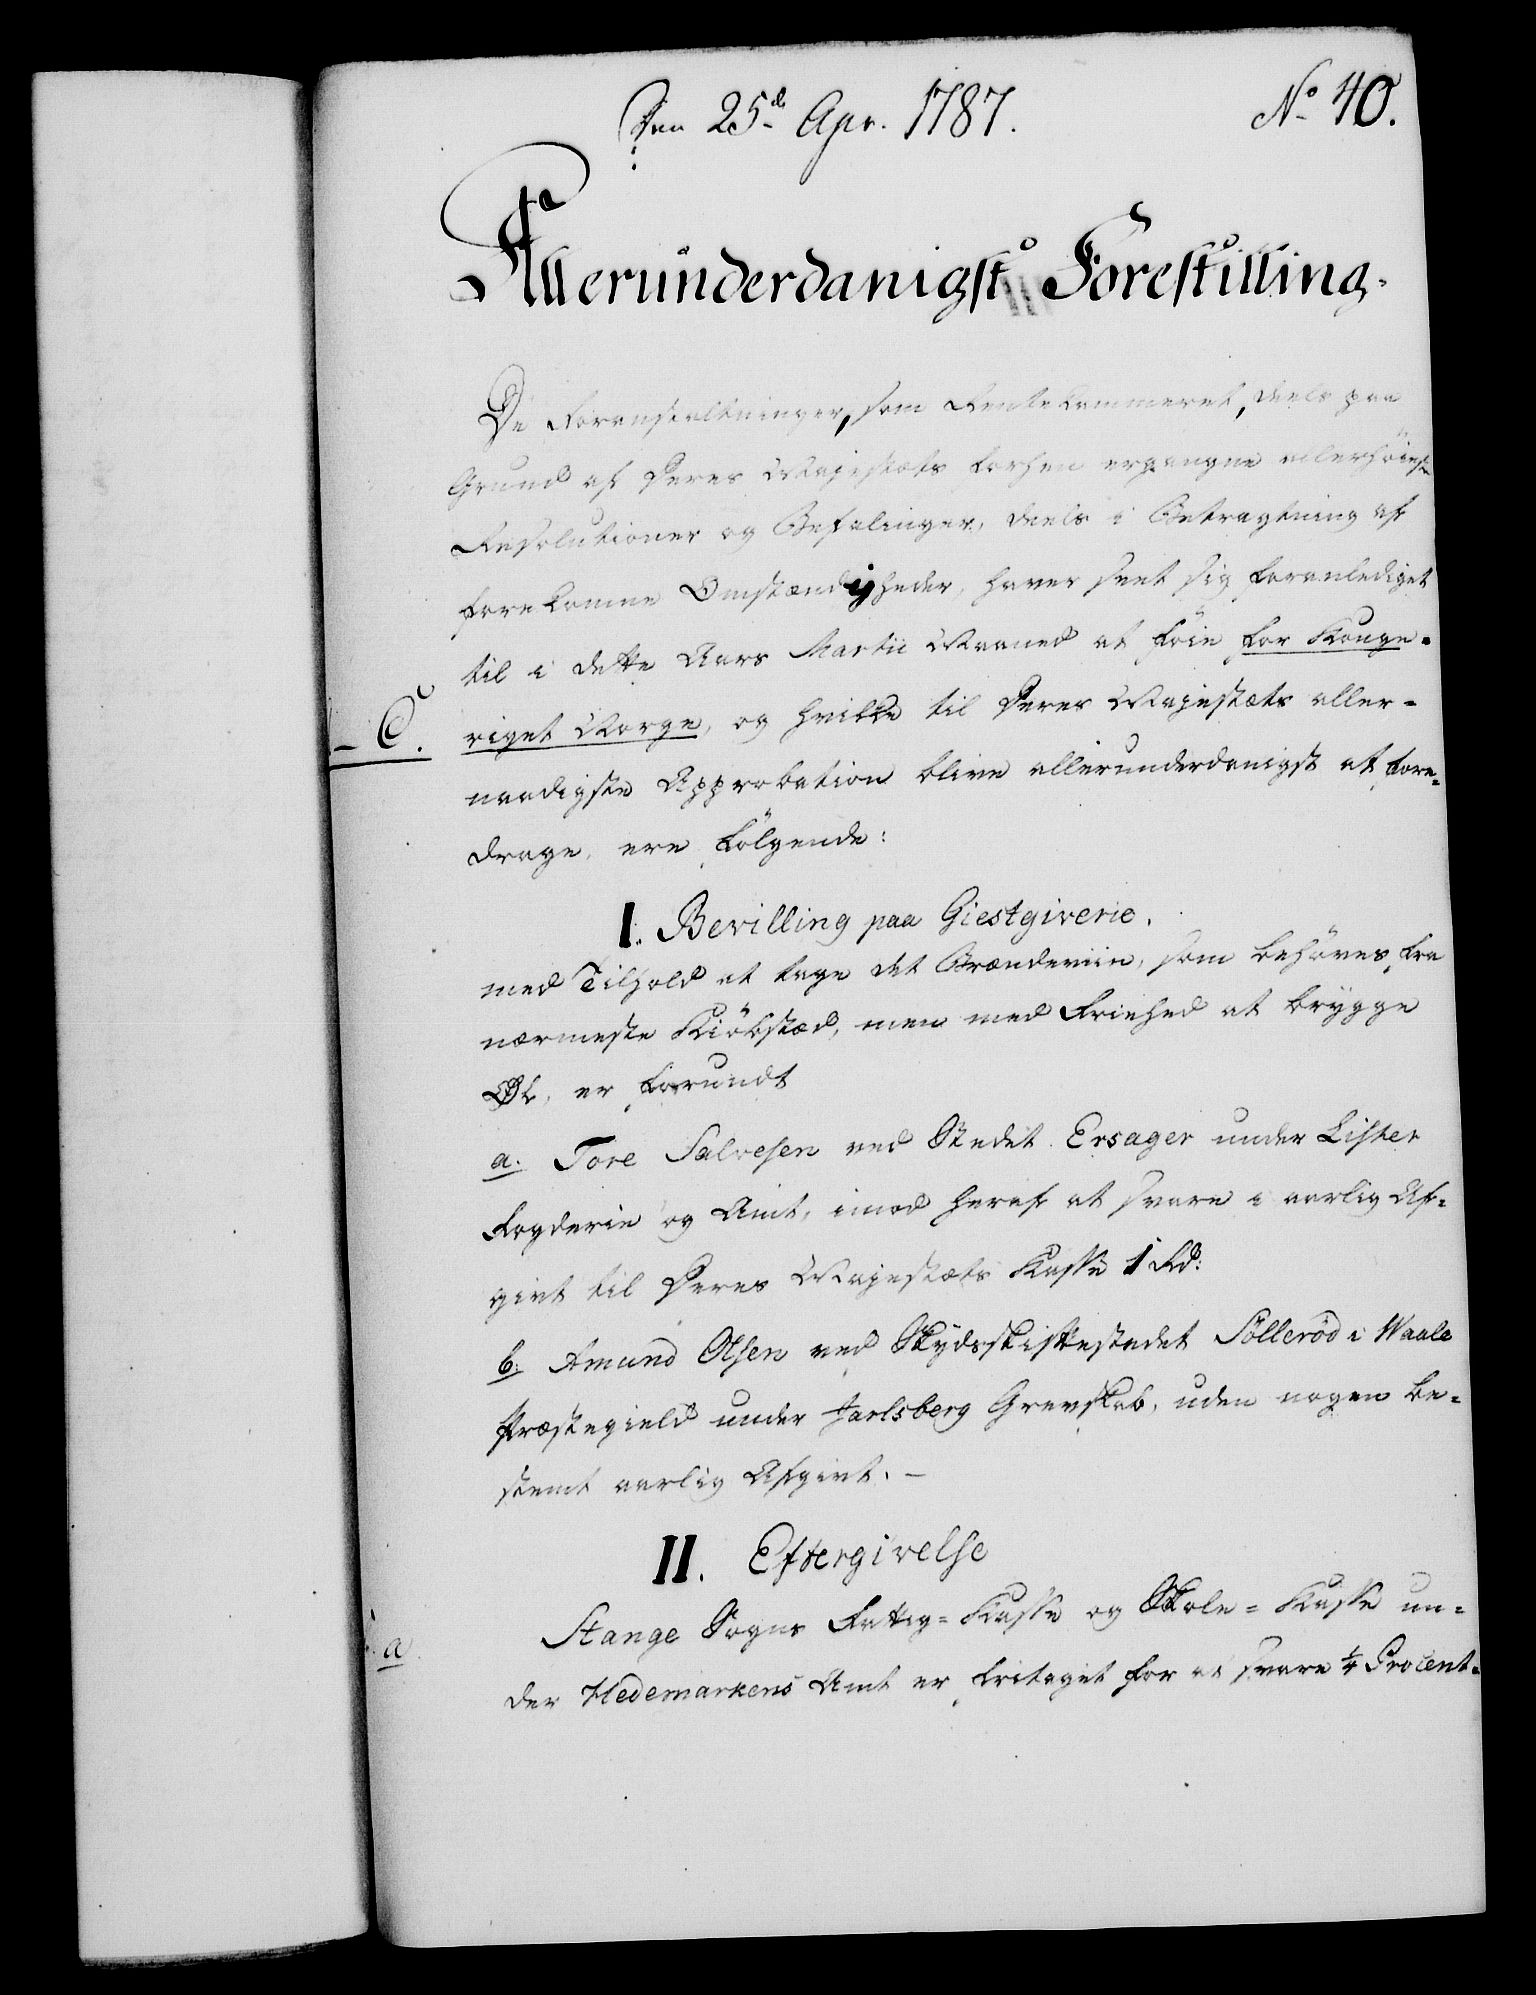 Den 25de Apr. 1787.
No 40.
Allerunderdanigst Forestilling.
De Foranstaltninger, som Rentekammeret, deels paa
Grund af Deres Majestæts forhen ergangne allerhöieste
Resolutioner og Befalinger, deels i Betragtning af
forekomne Omstændigheder, haver seet sig foranlediget
til i dette Aars Martii Maaned at föie for Konge-
riget Norge, og hvilke til Deres Majestæts aller-
C.
naadigste Approbation blive allerunderdanigst at fore-
drage, ere fölgende:
I. Bevilling paa Giestgiverie.
med Tilhold at tage det Brændeviin, som behöves, fra
nærmeste Kiöbstæd, men med Friehed at brygge
Øl, er forundt
a. Tore Salvesen ved Stedet Ersager under Lister
Fogderie og Amt, imod heraf at svare i aarlig Af-
givt til Deres Majestæts Kasse 1 Rd:
b. Amund Olsen ved Skydsskiftestedet Sölleröd i Waale
Præstegield under Jarlsberg Grevskab, uden nogen be-
stemt aarlig Afgivt. -
II. Eftergivelse
Stange Sogns Fattig-Kasse og Skole-Kasse un-
a
der Hedemarkens Amt er fritaget for at svare 1/4 Procent-